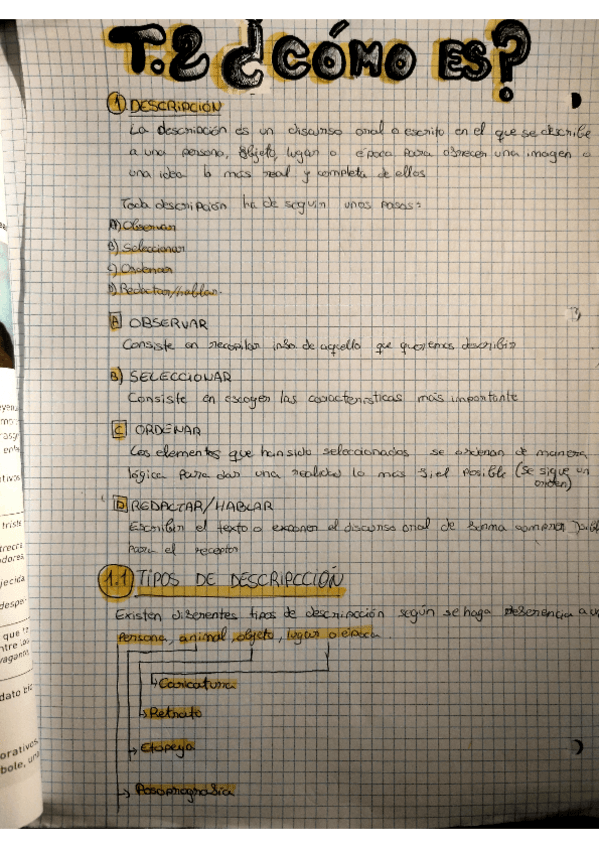 T.2 ¿CÓMO ES?
1 DESCRIPCIÓN
La descripción es un discurso oral o escrito en el que se describe
a una persona, objeto, lugar o época para ofrecer una imagen o
una idea lo mas real y completa de ellos
Toda descripción ha de seguir unos pasos:
A) Observar
B) Seleccionar
C) Ordenar
D) Redactar/hablar.
A OBSERVAR
Consiste en recopilar info. de aquello que queremos describir
B) SELECCIONAR
Consiste en escoger las características más importante
C ORDENAR
Los elementos que han sido seleccionados se ordenan de manera
lógica para dar una realidad lo mas fiel posible (se sigue un
orden)
D REDACTAR/HABLAR
Escribir el texto o exponer el discurso oral de forma comprensible
para el receptor
1.1 TIPOS DE DESCRIPCCIÓN
Existen diferentes tipos de descripción según se haga referencia a u
Persona, animal, objeto, lugar o época.
Caricatura
Retrato
Etopeya
Posoprografía
triste
jecida
despe-
que
dato bio
orativos
bole, una